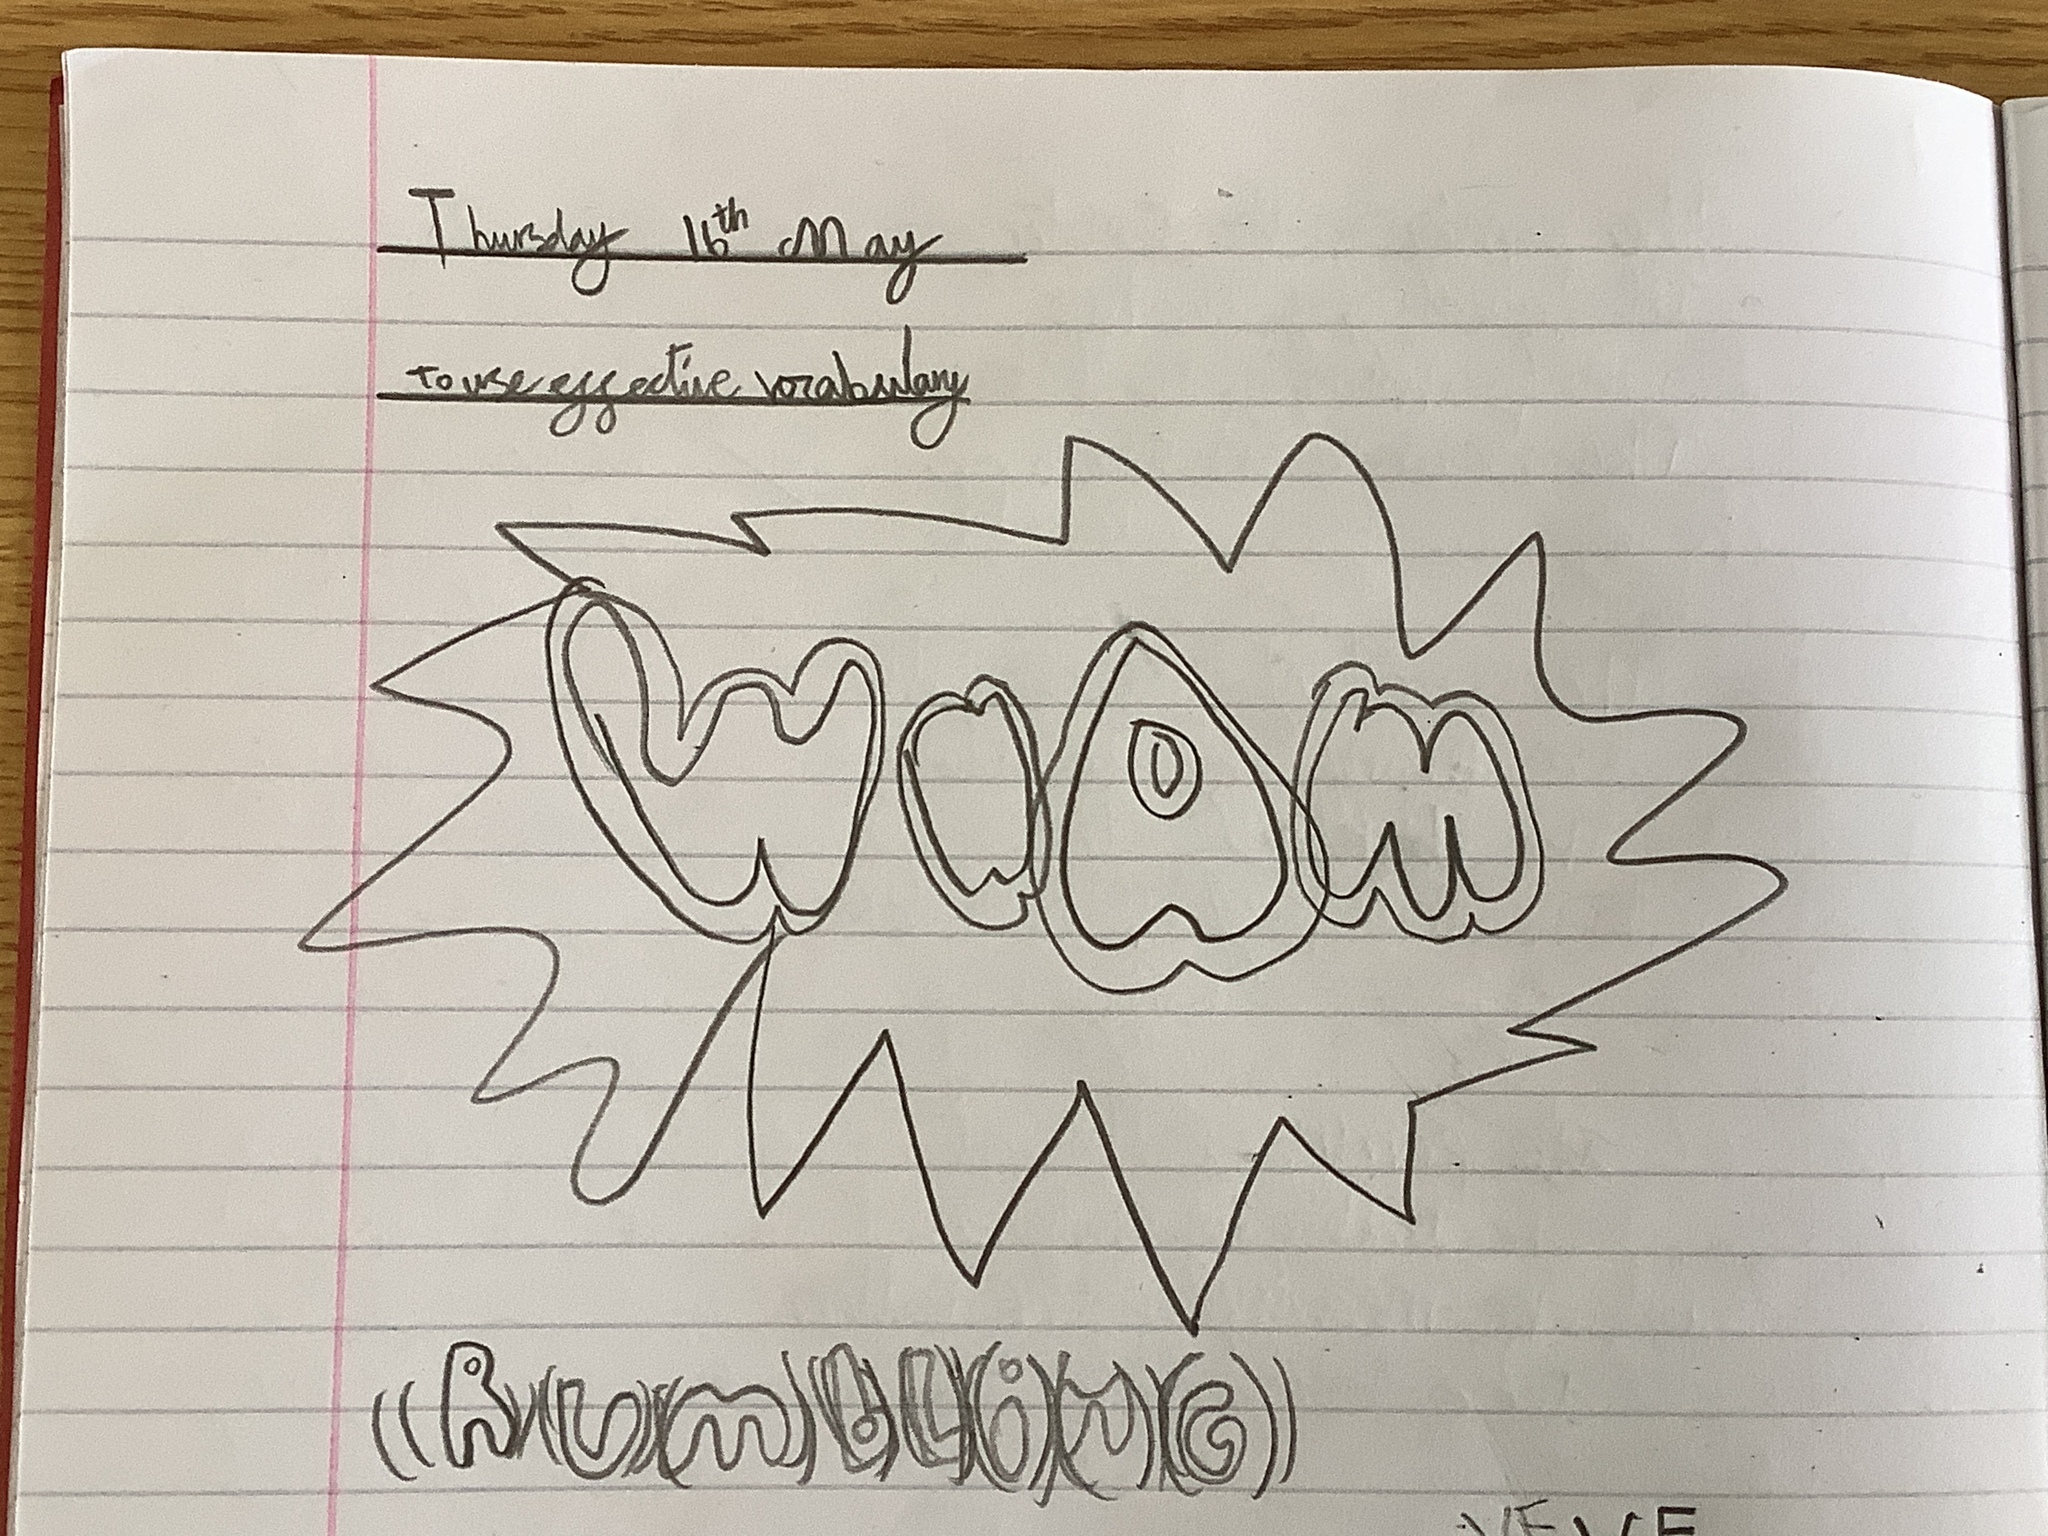 Thursday 16th May
to use effective vocabulary
WHAM
((RUMbLiNG))